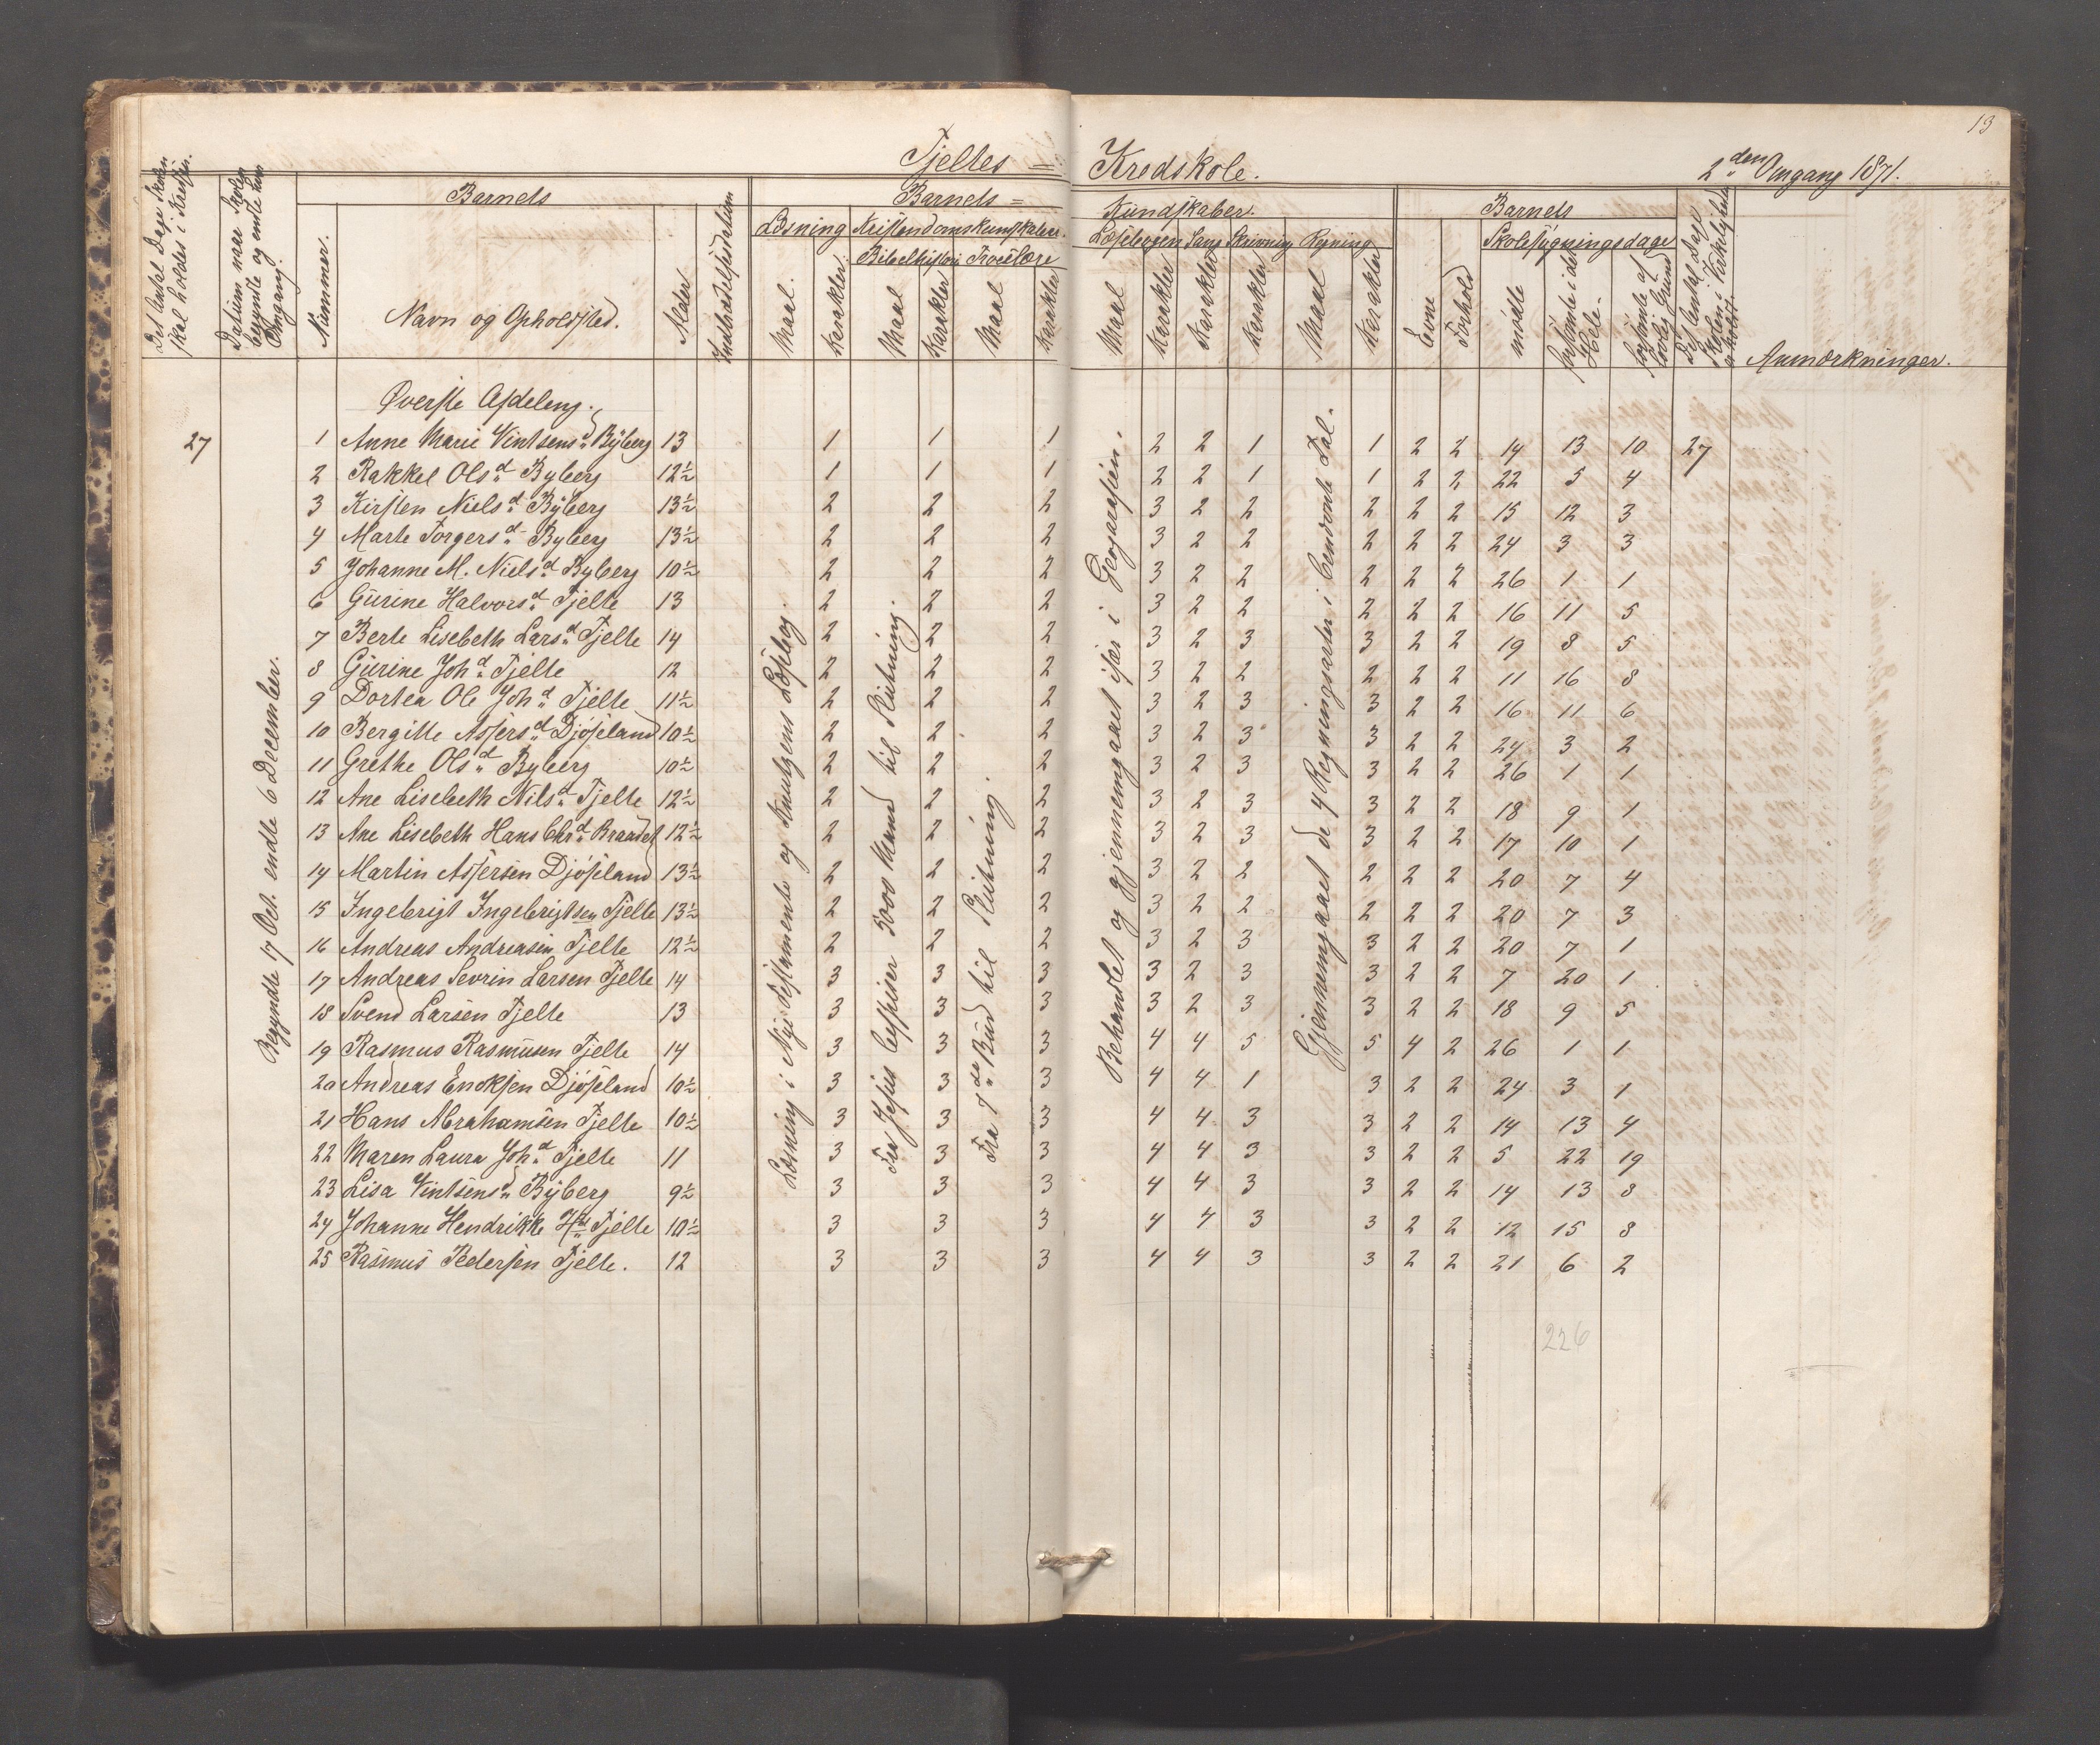 13
Tjeltes = Kredskole. 2den Omgang 1871.
Det Antal Dage Skolen skal holdes i Kredsen.
Datum naar Skolen begyndte og endte hver Omgang.
Barnets
Nummer.
Navn og Opholdssted.
Alder
Indtrædelsesdatum
Barnets =
Læsning
Kristendomskundskaber.
Bibelhistori Troeslære
Maal. Karakter. Maal Karakter Maal Karakter
Kundskaber.
Læsebogen Sang Skrivning Regning
Maal Karakter Karakter Karakter Maal Karakter
Barnets
Evne Forhold
Skolesøgningsdage
mødte
forsømte i det Hele.
forsømte af lovlig Grund
Det Antal Dage Skolen i Virkelighed er holdt
Anmærkninger.
Øverste Afdeling.
27
Begyndte 17 Oct. endte 6 December.
Læsning i Nye Testamente og Knutzens Læsebog.
Fra Jesus bespiser 5000 Mand til Slutning.
Fra 7de Bud til Slutning.
Behandlet og gjennemgaaet især i Geografien.
Gjennemgaaet de 4 Regningsarter i benævnte Tal.
1 Anne Marie Vintsensd Byberg 13 1 1 1 2 2 1 1 2 2 14 13 10 27
2 Rakkel Olsd Byberg 12½ 1 1 1 2 2 1 1 2 2 22 5 4
3 Kirsten Nielsd Byberg 13½ 2 2 2 3 2 2 2 2 2 15 12 3
4 Marte Torgersd Byberg 13½ 2 2 2 3 2 2 2 2 2 24 3 3
5 Johanne M. Nielsd Byberg 10½ 2 2 2 3 2 2 2 2 2 26 1 1
6 Gurine Halvorsd Tjelte 13 2 2 2 3 2 2 2 2 2 16 11 5
7 Berte Lisebeth Larsd Tjelte 14 2 2 2 3 2 3 3 2 2 19 8 5
8 Gurine Johd Tjelte 12 2 2 2 3 2 2 2 2 2 11 16 8
9 Dortea Ole Johd Tjelte 11½ 2 2 2 3 2 3 3 2 2 16 11 6
10 Bergitte Assersd Djøseland 10½ 2 2 2 3 2 3 3 2 2 24 3 2
11 Grethe Olsd Byberg 10½ 2 2 2 3 2 3 3 2 2 26 1 1
12 Ane Lisebeth Nilsd Tjelte 12½ 2 2 2 3 2 3 3 2 2 18 9 1
13 Ane Lisebeth Hans Chrd 12½ 2 2 2 3 2 3 3 2 2 17 10 1
14 Martin Assersen Djøseland 13½ 2 2 2 3 2 2 2 2 2 20 7 4
15 Ingebrigt Ingebrigtsen Tjelte 13½ 2 2 2 3 2 2 2 2 2 20 7 3
16 Andreas Andreasen Tjelte 12½ 2 2 2 3 2 3 3 2 2 20 7 1
17 Andreas Sevrin Larsen Tjelte 14 3 3 3 3 2 3 3 2 2 7 20 1
18 Svend Larsen Tjelte 13 3 3 3 3 2 3 3 2 2 18 9 5
19 Rasmus Rasmusen Tjelte 14 3 3 3 4 4 5 5 4 2 26 1 1
20 Andreas Enoksen Djøseland 10½ 3 3 3 4 4 1 3 2 2 24 3 1
21 Hans Abrahamsen Tjelte 10½ 3 3 3 4 4 3 3 2 2 14 13 4
22 Maren Laura Johd Tjelte 11 3 3 3 4 4 3 3 2 2 5 22 19
23 Lisa Vintsensd Byberg 9½ 3 3 3 4 4 3 3 2 2 14 13 8
24 Johanne Hendrikke Hd Tjelte 10½ 3 3 3 4 4 3 3 2 2 12 15 8
25 Rasmus Pedersen Tjelte. 12 3 3 3 4 4 3 3 2 2 21 6 2
226